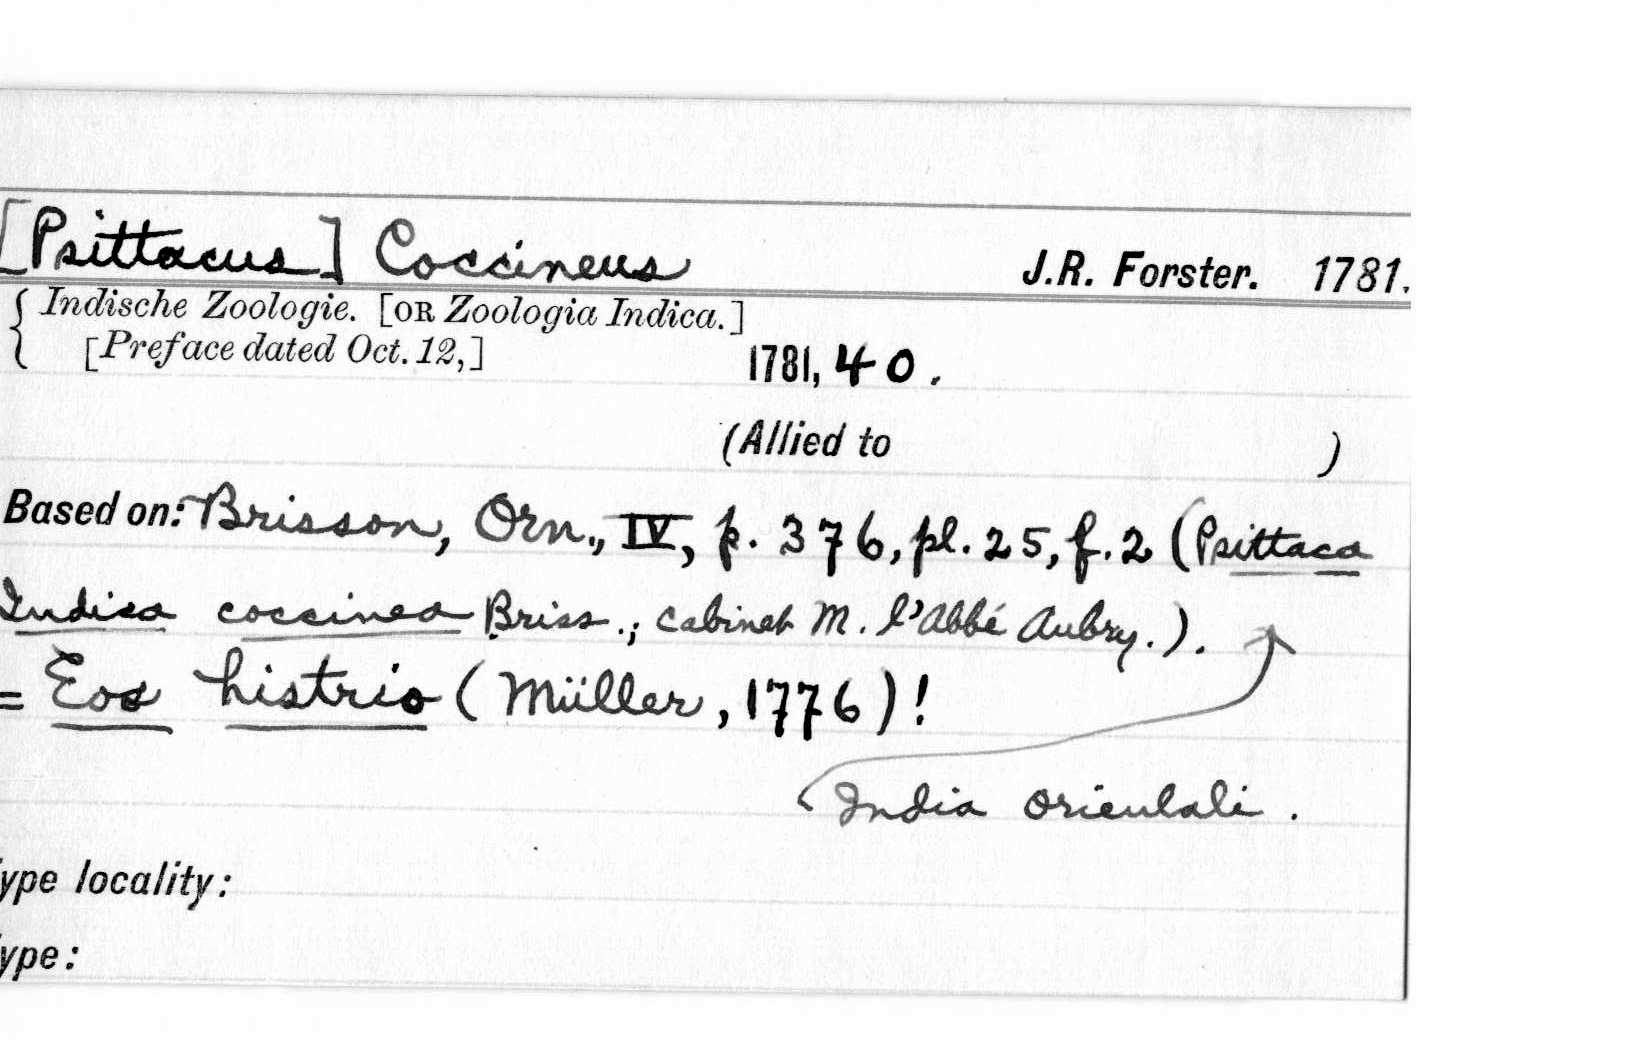 [Psittacus] Coccineus J.R. Forster. 1781.
{ Indische Zoologie. [OR Zoologia Indica.]
[Preface dated Oct. 12,] 1781, 40.
(Allied to )
Based on: Brisson, Orn., IV, p. 376, pl. 25, f. 2 (Psittaca
Indica coccinea Briss.; cabinet M. l'Abbé Aubry.).
= Eos histrio (Müller, 1776)!
India orientali.
ype locality:
ype: